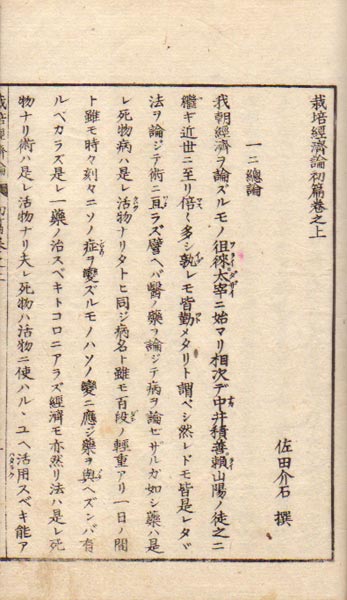 栽培經濟論初篇卷之上
佐田介石 撰
一ニ總論
我朝經濟ヲ論ズルモノ徂徠太宰ニ始マリ相次デ中井積善頼山陽ノ徒之ニ
繼ギ近世ニ至リ倍〻多シ孰レモ皆勤メタリト謂ベシ然レドモ皆是レタヾ
法ヲ論ジテ術ニ亘ラズ譬ヘバ醫ノ藥ヲ論ジテ病ヲ論ゼザルガ如シ藥ハ是
レ死物病ハ是レ活物ナリタトヒ同ジ病名ト雖モ百段ノ輕重アリ一日ノ間
ト雖モ時々刻々ニソノ症ヲ變ズルモノハソノ變ニ應ジ藥ヲ與ヘズンバ有
ルベカラズ是レ一藥ノ治スベキトコロニアラズ經濟モ亦然リ法ハ是レ死
物ナリ術ハ是レ活物ナリ夫レ死物ハ活物ニ使ハル丶ユヘ活用スベキ能ア
栽培經濟論 初篇卷之上